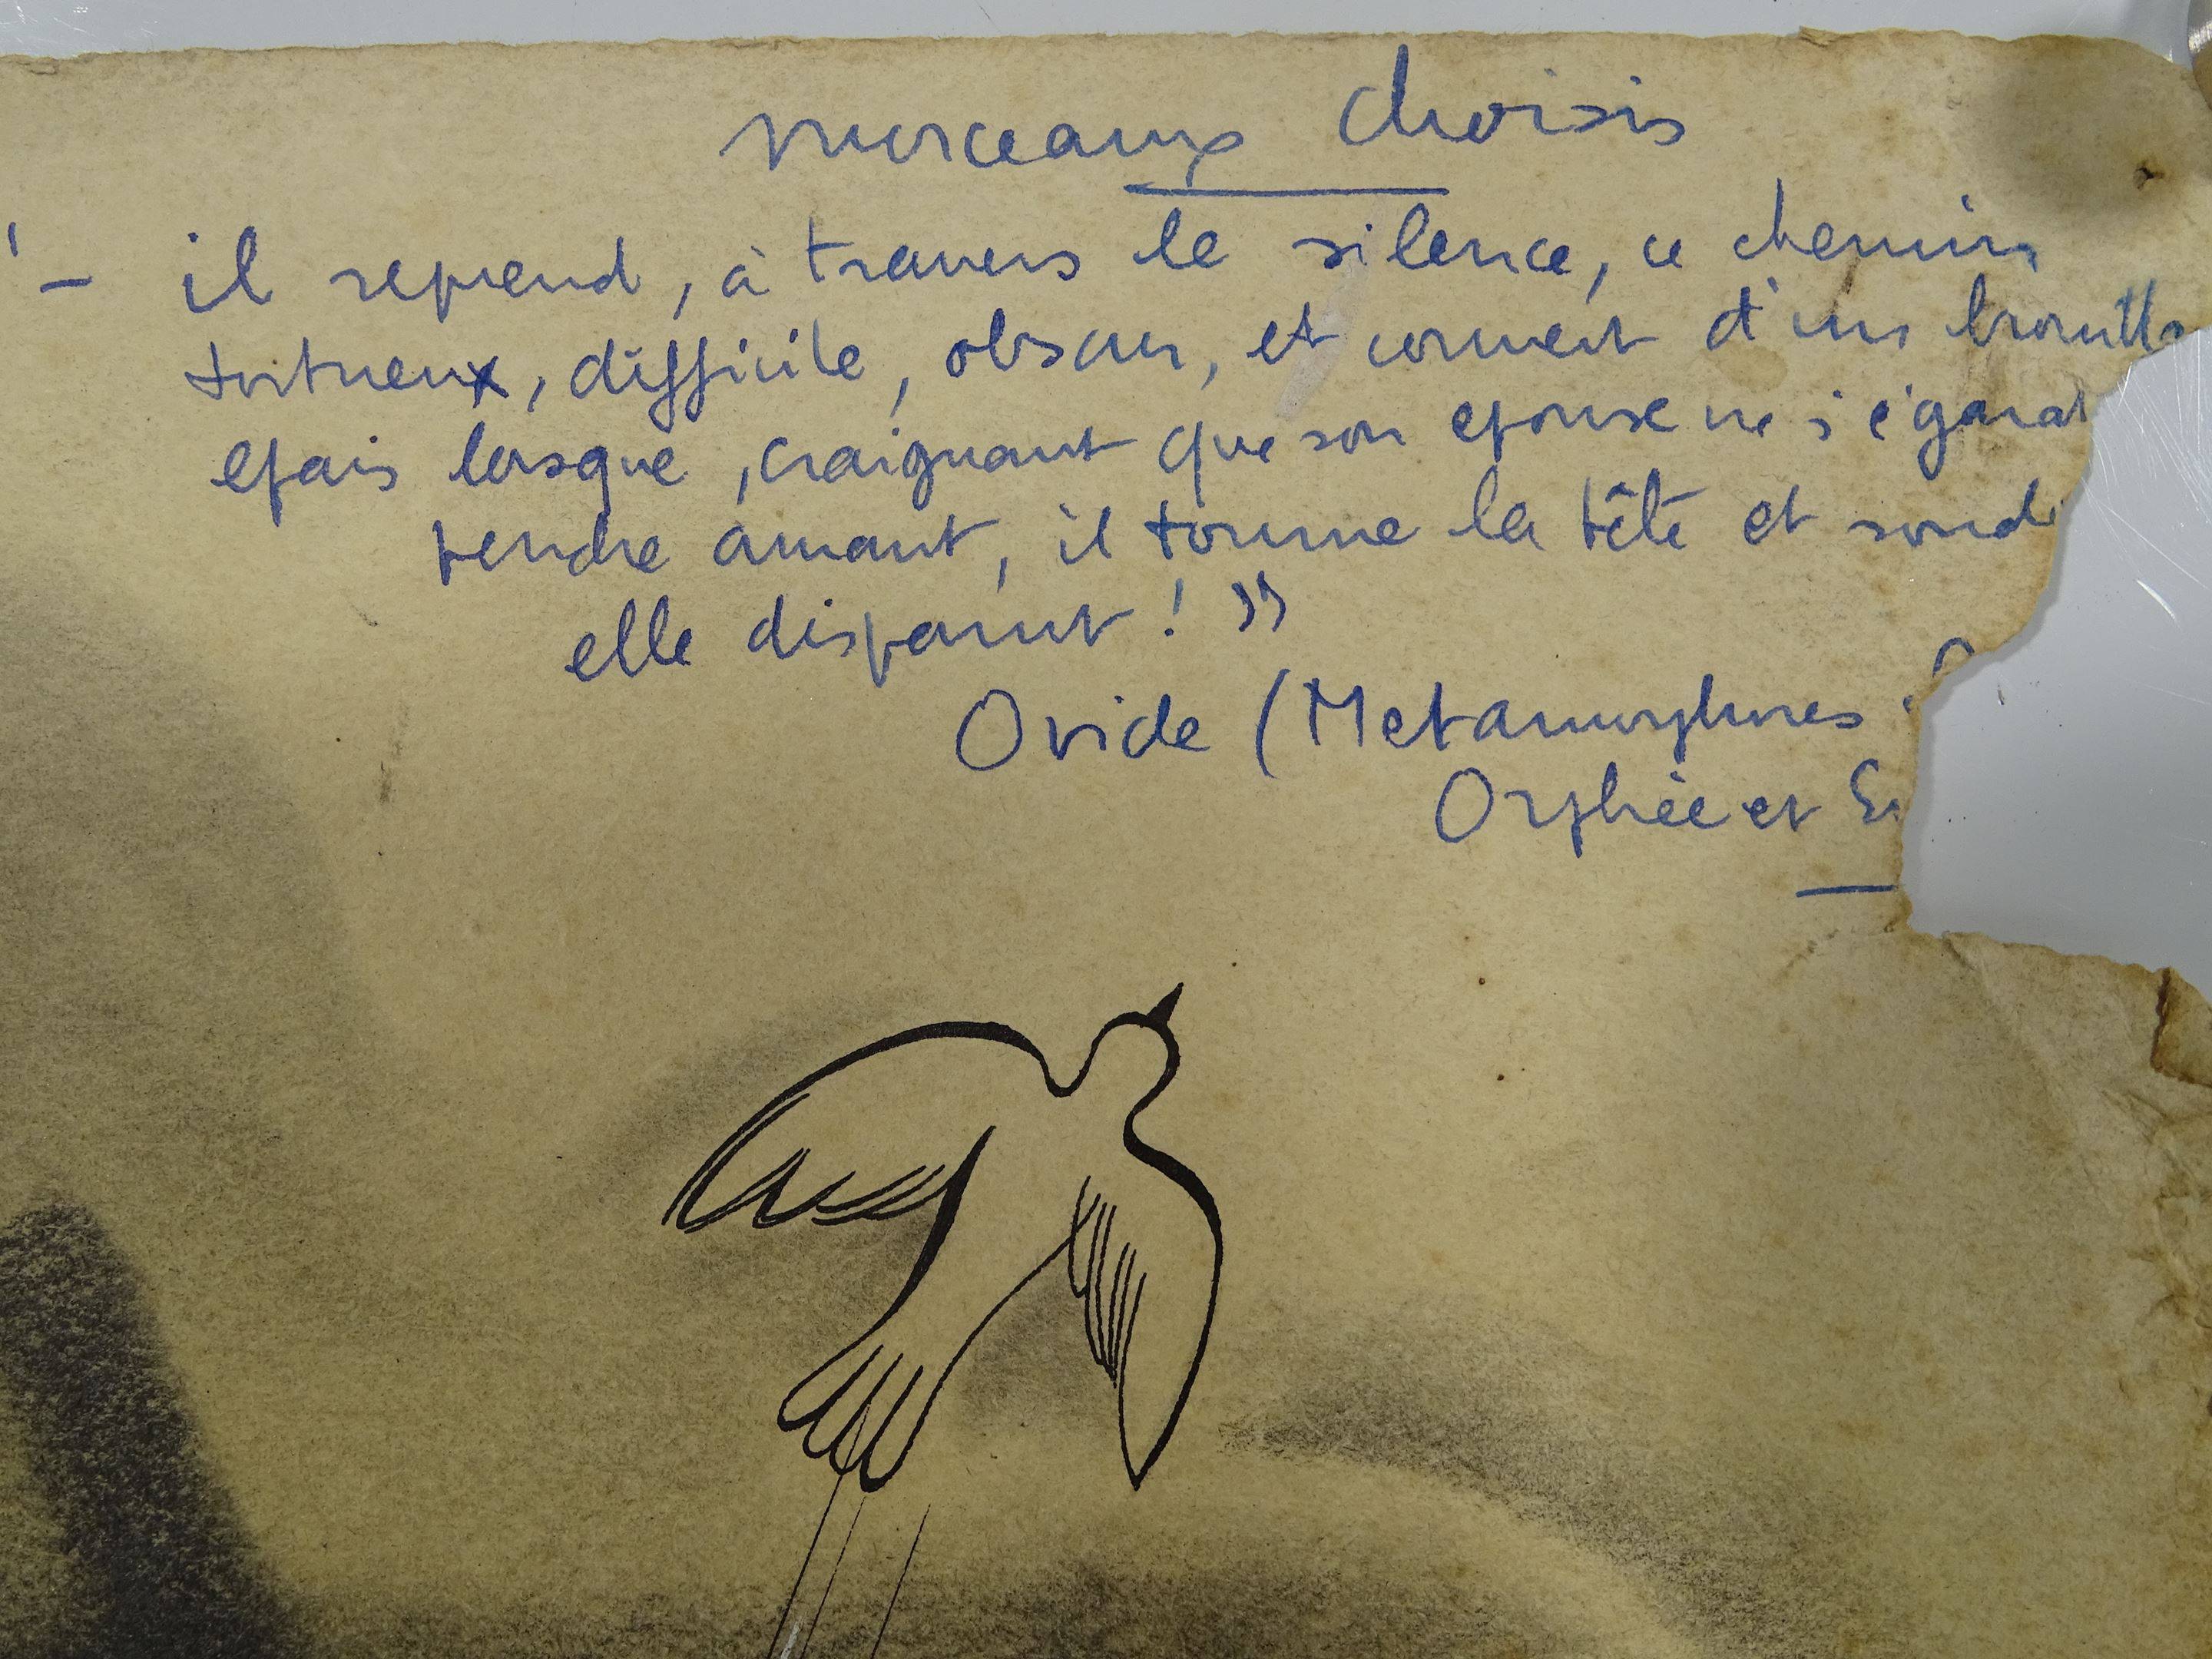 morceaux choisis
'– il reprend, à travers le silence, ce chemin
tortueux, difficile, obscur, et couvert d'un brouilla
epais lorsque, craignant que son epouse ne s'égarat
tendre amant, il tourne la tête et soud
elle disparut ! »
Ovide (Metamorphoses
Orphée et Eu